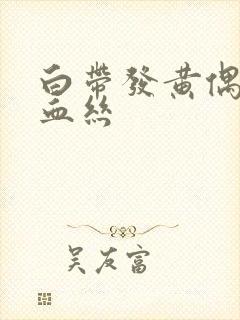 白帶發黃偶
血絲
吳友富